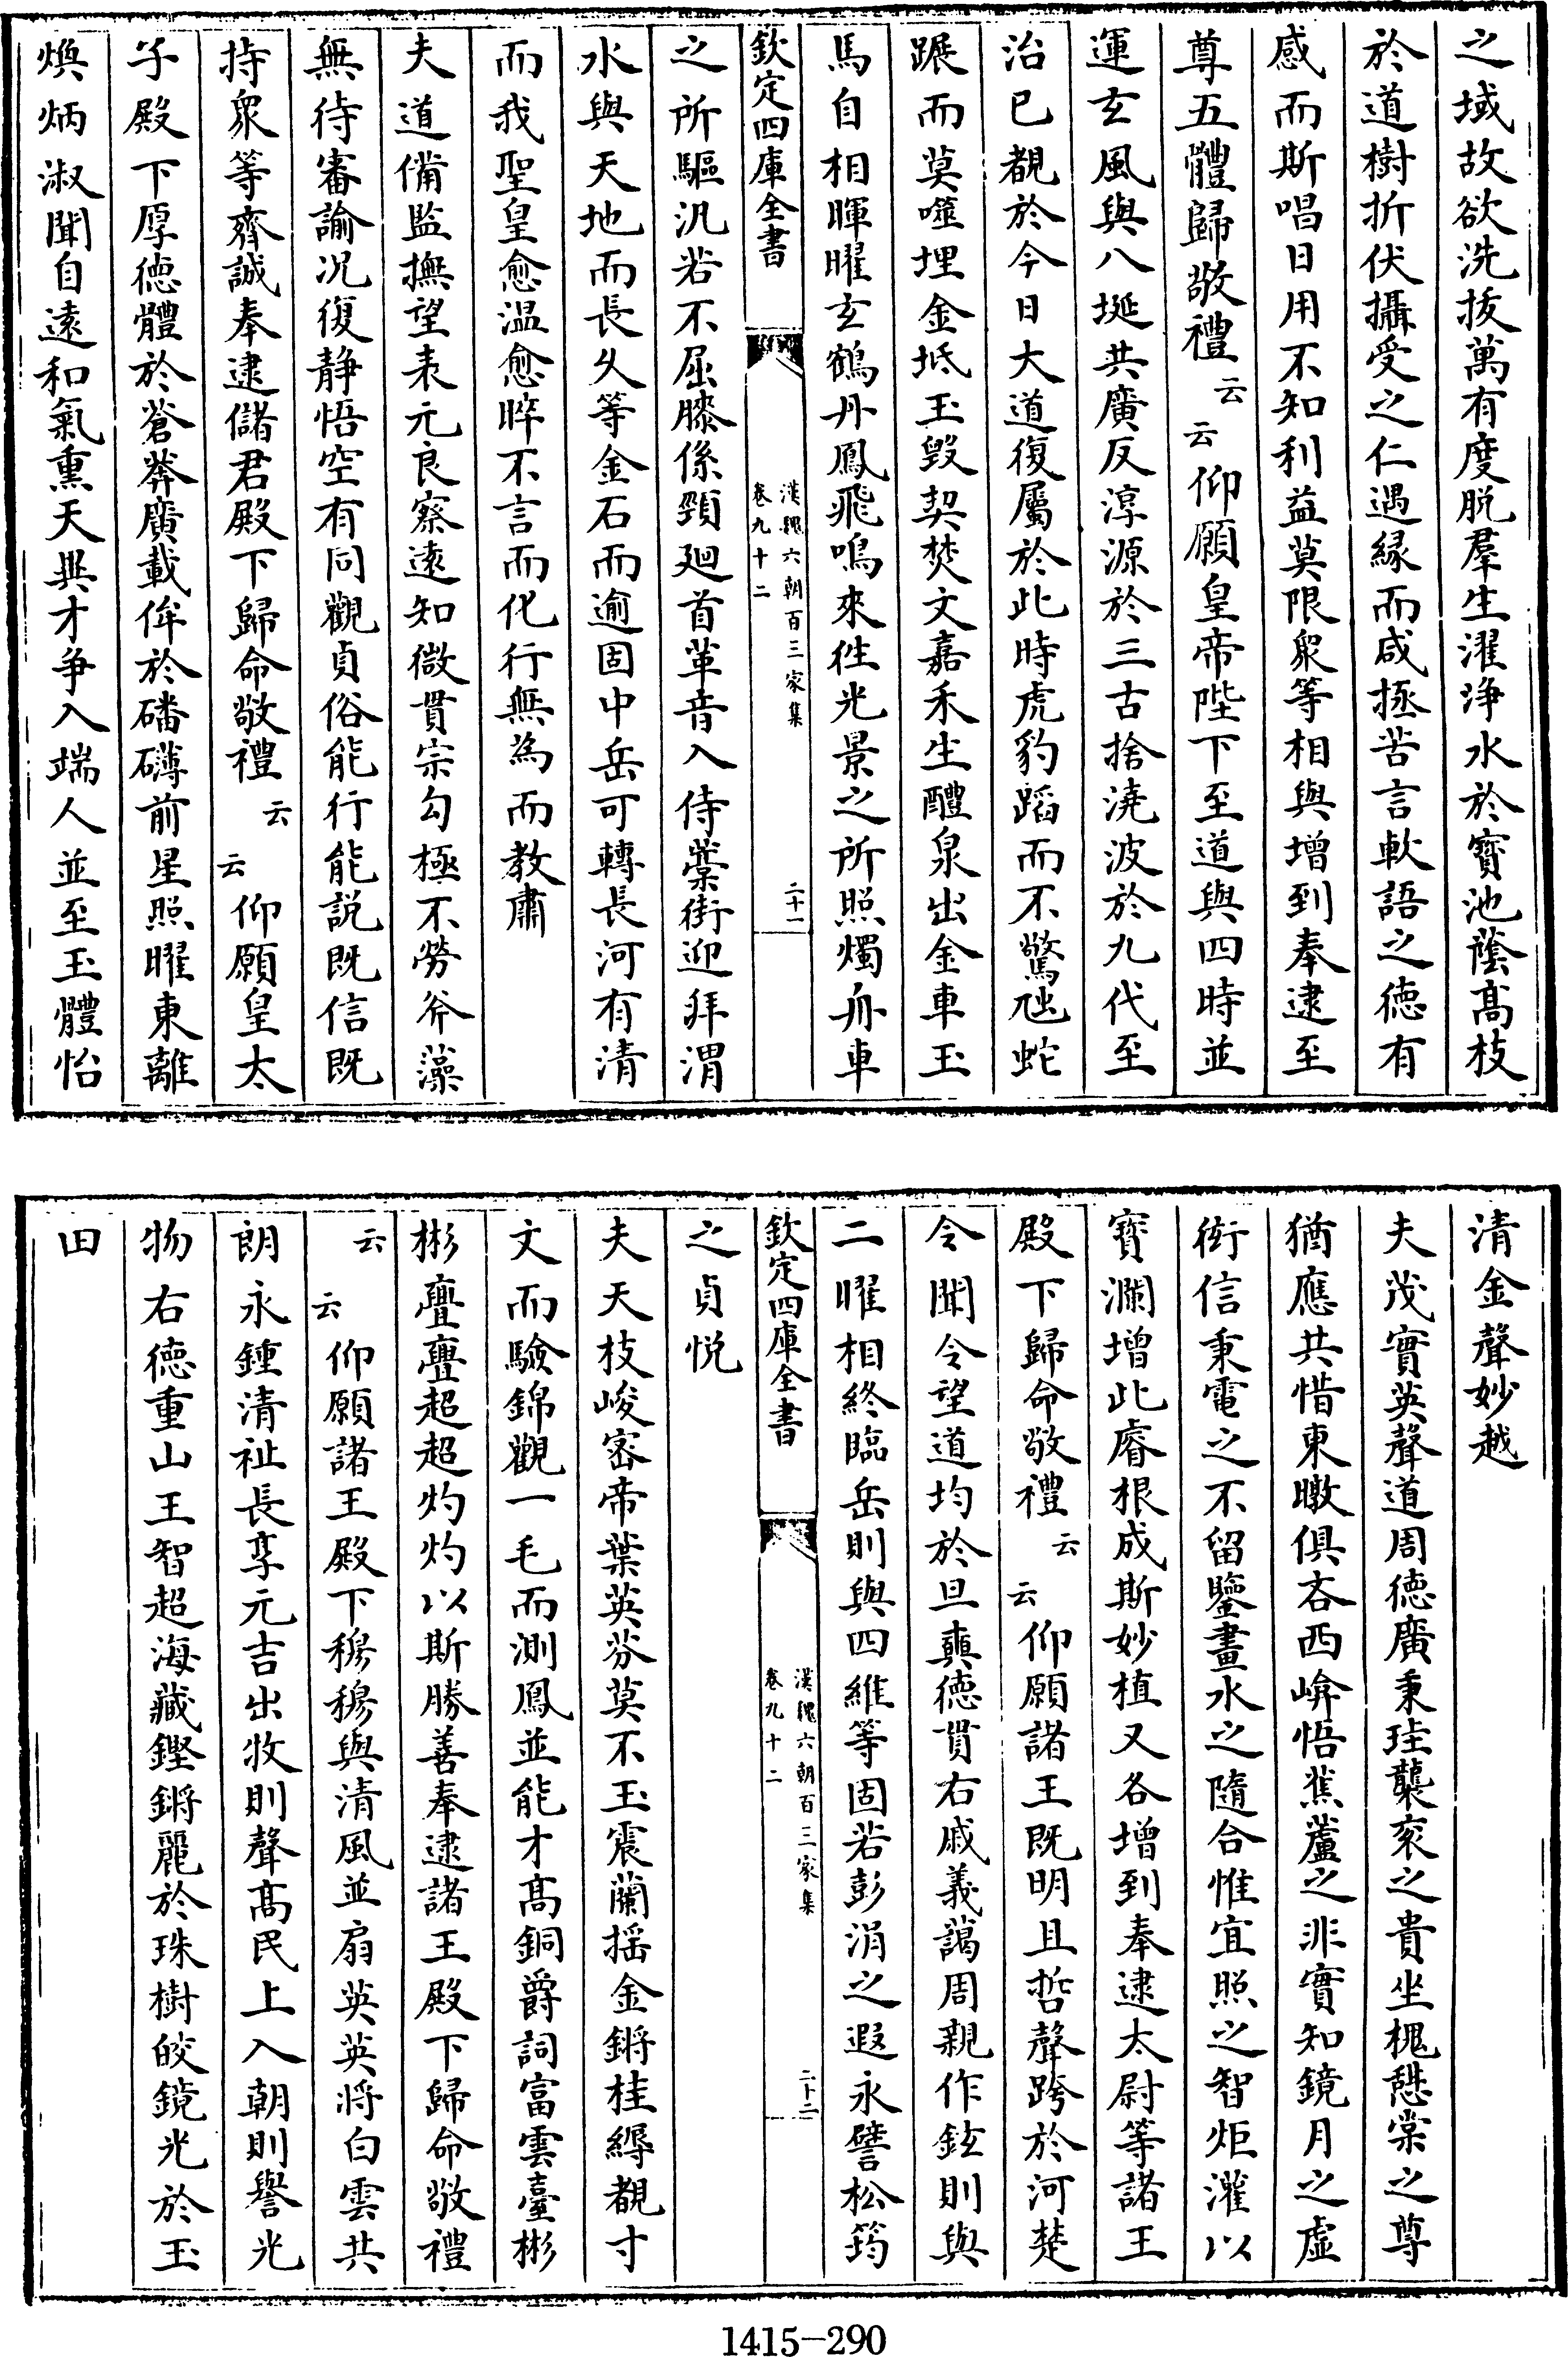 之域故欲洗拔萬有度脱羣生濯浄水於寳池蔭髙枝
於道樹折伏攝受之仁遇縁而咸拯苦言軟語之徳有
感而斯唱日用不知利益莫限衆等相與增到奉逮至
尊五體歸敬禮云云仰願皇帝陛下至道與四時並
運玄風與八埏共廣反淳源於三古捨澆波於九代至
治已覩於今日大道復屬於此時虎豹蹈而不驚虺蛇
蹍而莫噬埋金抵玉毁契焚文嘉禾生醴泉出金車玉
馬自相暉曜玄鶴丹鳳飛鳴來徃光景之所照燭舟車
欽定四庫全書
漢魏六朝百三家集
卷九十二
二十一
之所驅汎若不屈膝係頸廻首革音入侍藁街迎拜渭
水與天地而長久等金石而逾固中岳可轉長河有清
而我聖皇愈温愈睟不言而化行無為而教肅
夫道備監撫望表元良察遠知微貫宗勾極不勞斧藻
無待審諭况復静悟空有同觀貞俗能行能説既信既
持衆等齊誠奉逮儲君殿下歸命敬禮云云仰願皇太
子殿下厚徳體於蒼莽廣載侔於磻礴前星照曜東離
煥炳淑聞自遠和氣熏天與才争入端人並至玉體怡
清金聲妙越
夫茂實英聲道周徳廣秉珪襲衮之貴坐槐憇棠之尊
猶應共惜東暾俱吝西崦悟蕉蘆之非實知鏡月之虚
衒信秉電之不留鑒畫水之隨合惟宜照之智炬灌以
寳瀾增此睿根成斯妙植又各增到奉逮太尉等諸王
殿下歸命敬禮云云仰願諸王既明且哲聲跨於河楚
令聞令望道均於旦奭徳貫右戚義藹周親作鉉則與
二曜相終臨岳則與四維等固若彭涓之遐永譬松筠
欽定四庫全書
漢魏六朝百三家集
卷九十二
二十二
之貞悦
夫天枝峻宻帝葉英芬莫不玉震蘭揺金鏘桂縟覩寸
文而驗錦觀一毛而測鳳並能才髙銅爵詞富雲臺彬
彬亹亹超超灼灼以斯勝善奉逮諸王殿下歸命敬禮
云云仰願諸王殿下穆穆與清風並扇英英將白雲共
朗永鍾清祉長享元吉出牧則聲髙民上入朝則譽光
物右徳重山王智超海藏鏗鏘麗於珠樹皎鏡光於玉
田
1415-290